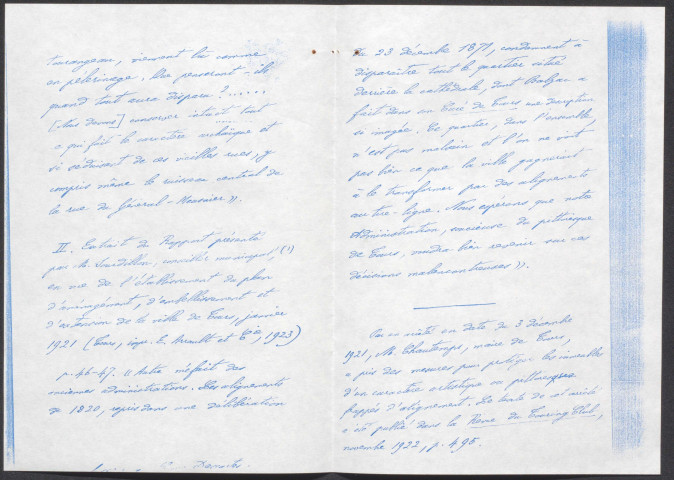 tourangeau, viennent là comme
en pèlerinage. Que penseront-ils
quand tout aura disparu ?......
[Nous devons] conserver intact tout
ce qui fait le caractère archaïque et
si séduisant de ces vieilles rues, y
compris même le ruisseau central de
la rue du Général-Meusnier ».
II. Extrait du Rapport présenté
par M. conseiller municipal, (1)
en vue de l'établissement du plan
d'aménagement, d'embellissement et
d'extension de la ville de Tours, janvier
1921 (Tours, imp. E. Arrault et Cie, 1923)
p. 46-47. « Autre méfait des
anciennes administrations. Les alignements
de 1820, repris dans une délibération
du 23 décembre 1871, condamnent à
disparaître tout le quartier situé
derrière la cathédrale, dont Balzac a
fait dans son Curé de Tours une description
si imagée. Ce quartier, dans l'ensemble,
n'est pas malsain et l'on ne voit
pas bien ce que la ville gagnerait
à le transformer par des alignements
outre-ligne. Nous espérons que notre
Administration, soucieuse du pittoresque
de Tours, voudra bien revenir sur ces
décisions malencontreuses ».
Par un arrêté en date du 3 décembre
1921, M. Chautemps, maire de Tours,
a pris des mesures pour protéger les immeubles
d'un caractère artistique ou pittoresque
frappés d'alignement. Le texte de cet arrêté
a été publié dans la Revue du Touring-Club,
novembre 1922, p. 495.